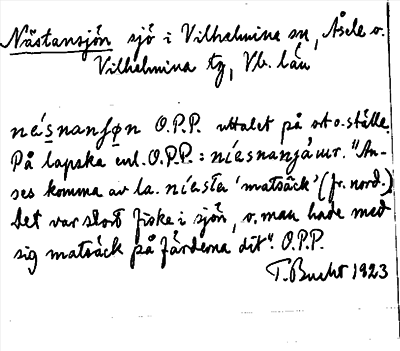 Nästansjön sjö i Vilhelmina sn, Åsele o.
Vilhelmina tg, Vb. län
néṣnanʃø̣n O.P.P. uttalet på ort o. ställe.
På lapska enl. O.P.P.: níesnanjáur. "An-
ses komma av la. níesta 'matsäck' (fr. nord.)
Det var stort fiske i sjön, o. man hade med
sig matsäck på färderna dit". O.P.P.
T. Bucht 1923